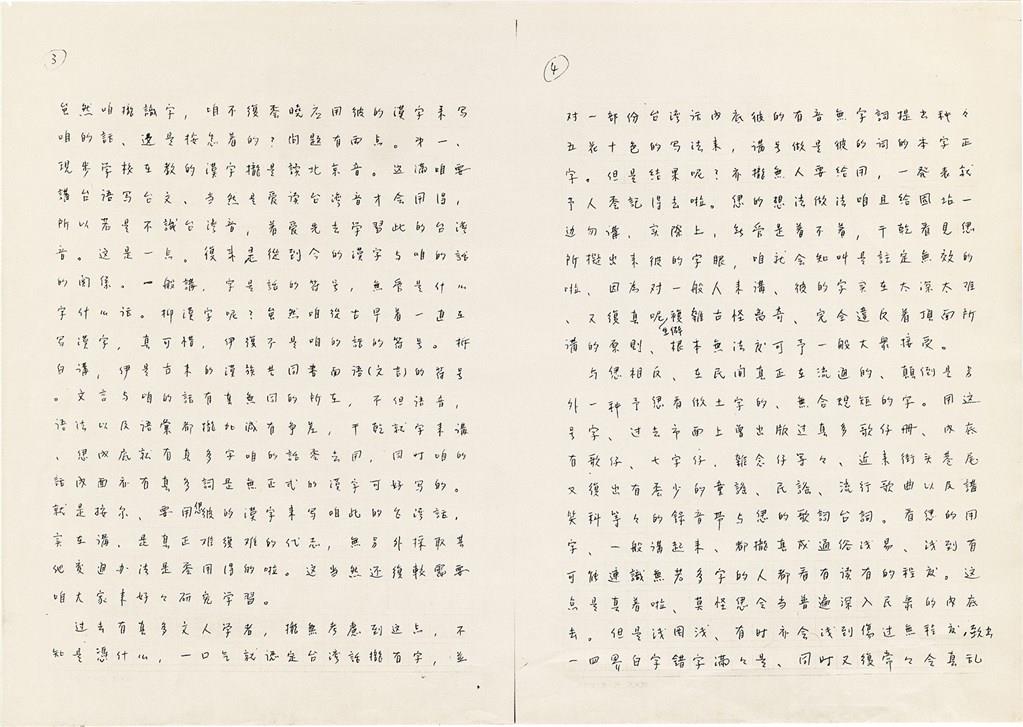 3
虽然咱攏識字，咱不復袂曉应用彼的漢字來写
咱的話、這是按怎着的？问题有两点。才一、
現步学校在教的漢字攏是讀北京音。这滿咱要
講台语写台文、当然是爱读台湾音才会用得，
所以若是不識台湾音，着爱先去学習此的台湾
音。这是一点。復来是從到今的漢字与咱的話
的関係。一般講，字是話的符号，無爱是什么
字什么话。抑漢字呢？虽然咱從古早着一直在
写漢字，真可惜，伊復不是咱的話的符号。拆
白講，伊是古来的漢族共同書面语(文言)的符号
。文言与咱的話有真無同的所在，不但语音，
语法以及语彙都攏比減有爭差，干乾就字来講
、怹内底就有真多字咱的話袂去用，同时咱的
話内面亦有真多词是無正式的漢字可好写的。
就是按尔、要用怹彼的漢字来写咱此的台湾話，
实在講、是真正难復难的代志，無另外採取其
他变通办法是袂用得的啦。这当然还復較需要
咱大家来好々研究学習。
过去有真多文人学者，攏無考慮到这点，不
知是憑什么，一口气就認定台湾話攏有字，並
4
对一部份台湾话内底彼的有音無字詞提出种々
五花十色的写法来，講号做是彼的词的本字正
字。但是结果呢？亦攏無人要给用，一発表就
予人袂記得去啦。怹的想法做法咱且给囥站一
边勿講，实際上，無爱是着不着，干乾看見怹
所擬出来彼的字眼，咱就会知叫是註定無效的
啦、因為对一般人来講、彼的字实在太深太难
、又復真呢生僻複雜古怪离奇、完全違反着頂面所
講的原則、根本無法度可予一般大衆接受。
与怹相反、在民间真正在流通的、顛倒是另
外一种予怹看做土字的、無合規矩的字。用这
号字、过去市面上曾出版过真多歌仔册、内底
有歌仔、七字仔、雜念仔等々、近来街头巷尾
又復出有袂少的童謠、民謠、流行歌曲以及講
笑科等々的錄音帶与怹的歌詞台詞。有怹的用
字、一般講起来、都攏真成通俗浅易、浅到有
可能連識無若多字的人都看有读有的程度。这
点是真着啦、莫怪怹会当普遍深入民衆的内底
去。但是浅固浅、有时亦会浅到傷过無程度，歌出
一四界白字错字滿々是、同时又復常々会真乱